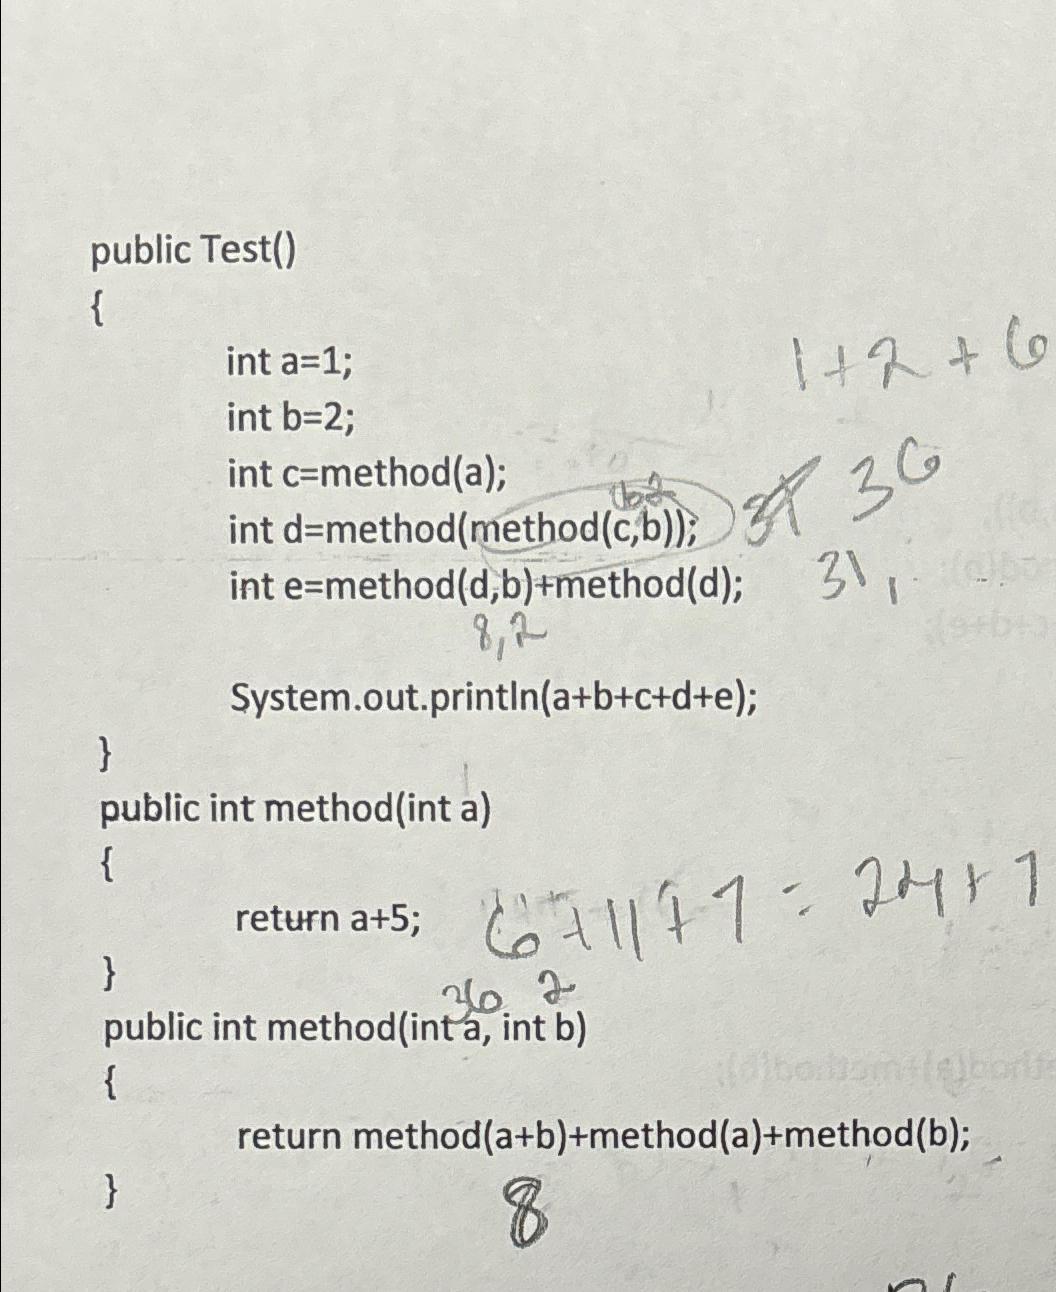 public Test()
{
int a=1;
1+2+6
int b=2;
int c=method(a);
6 2
int d=method(method(c,b)); 36
int e=method(d,b)+method(d); 31,
8,2
System.out.println(a+b+c+d+e);
}
public int method(int a)
{
return a+5; 6+11+7 = 24+7
}
36 2
public int method(int a, int b)
{
return method(a+b)+method(a)+method(b);
}
8